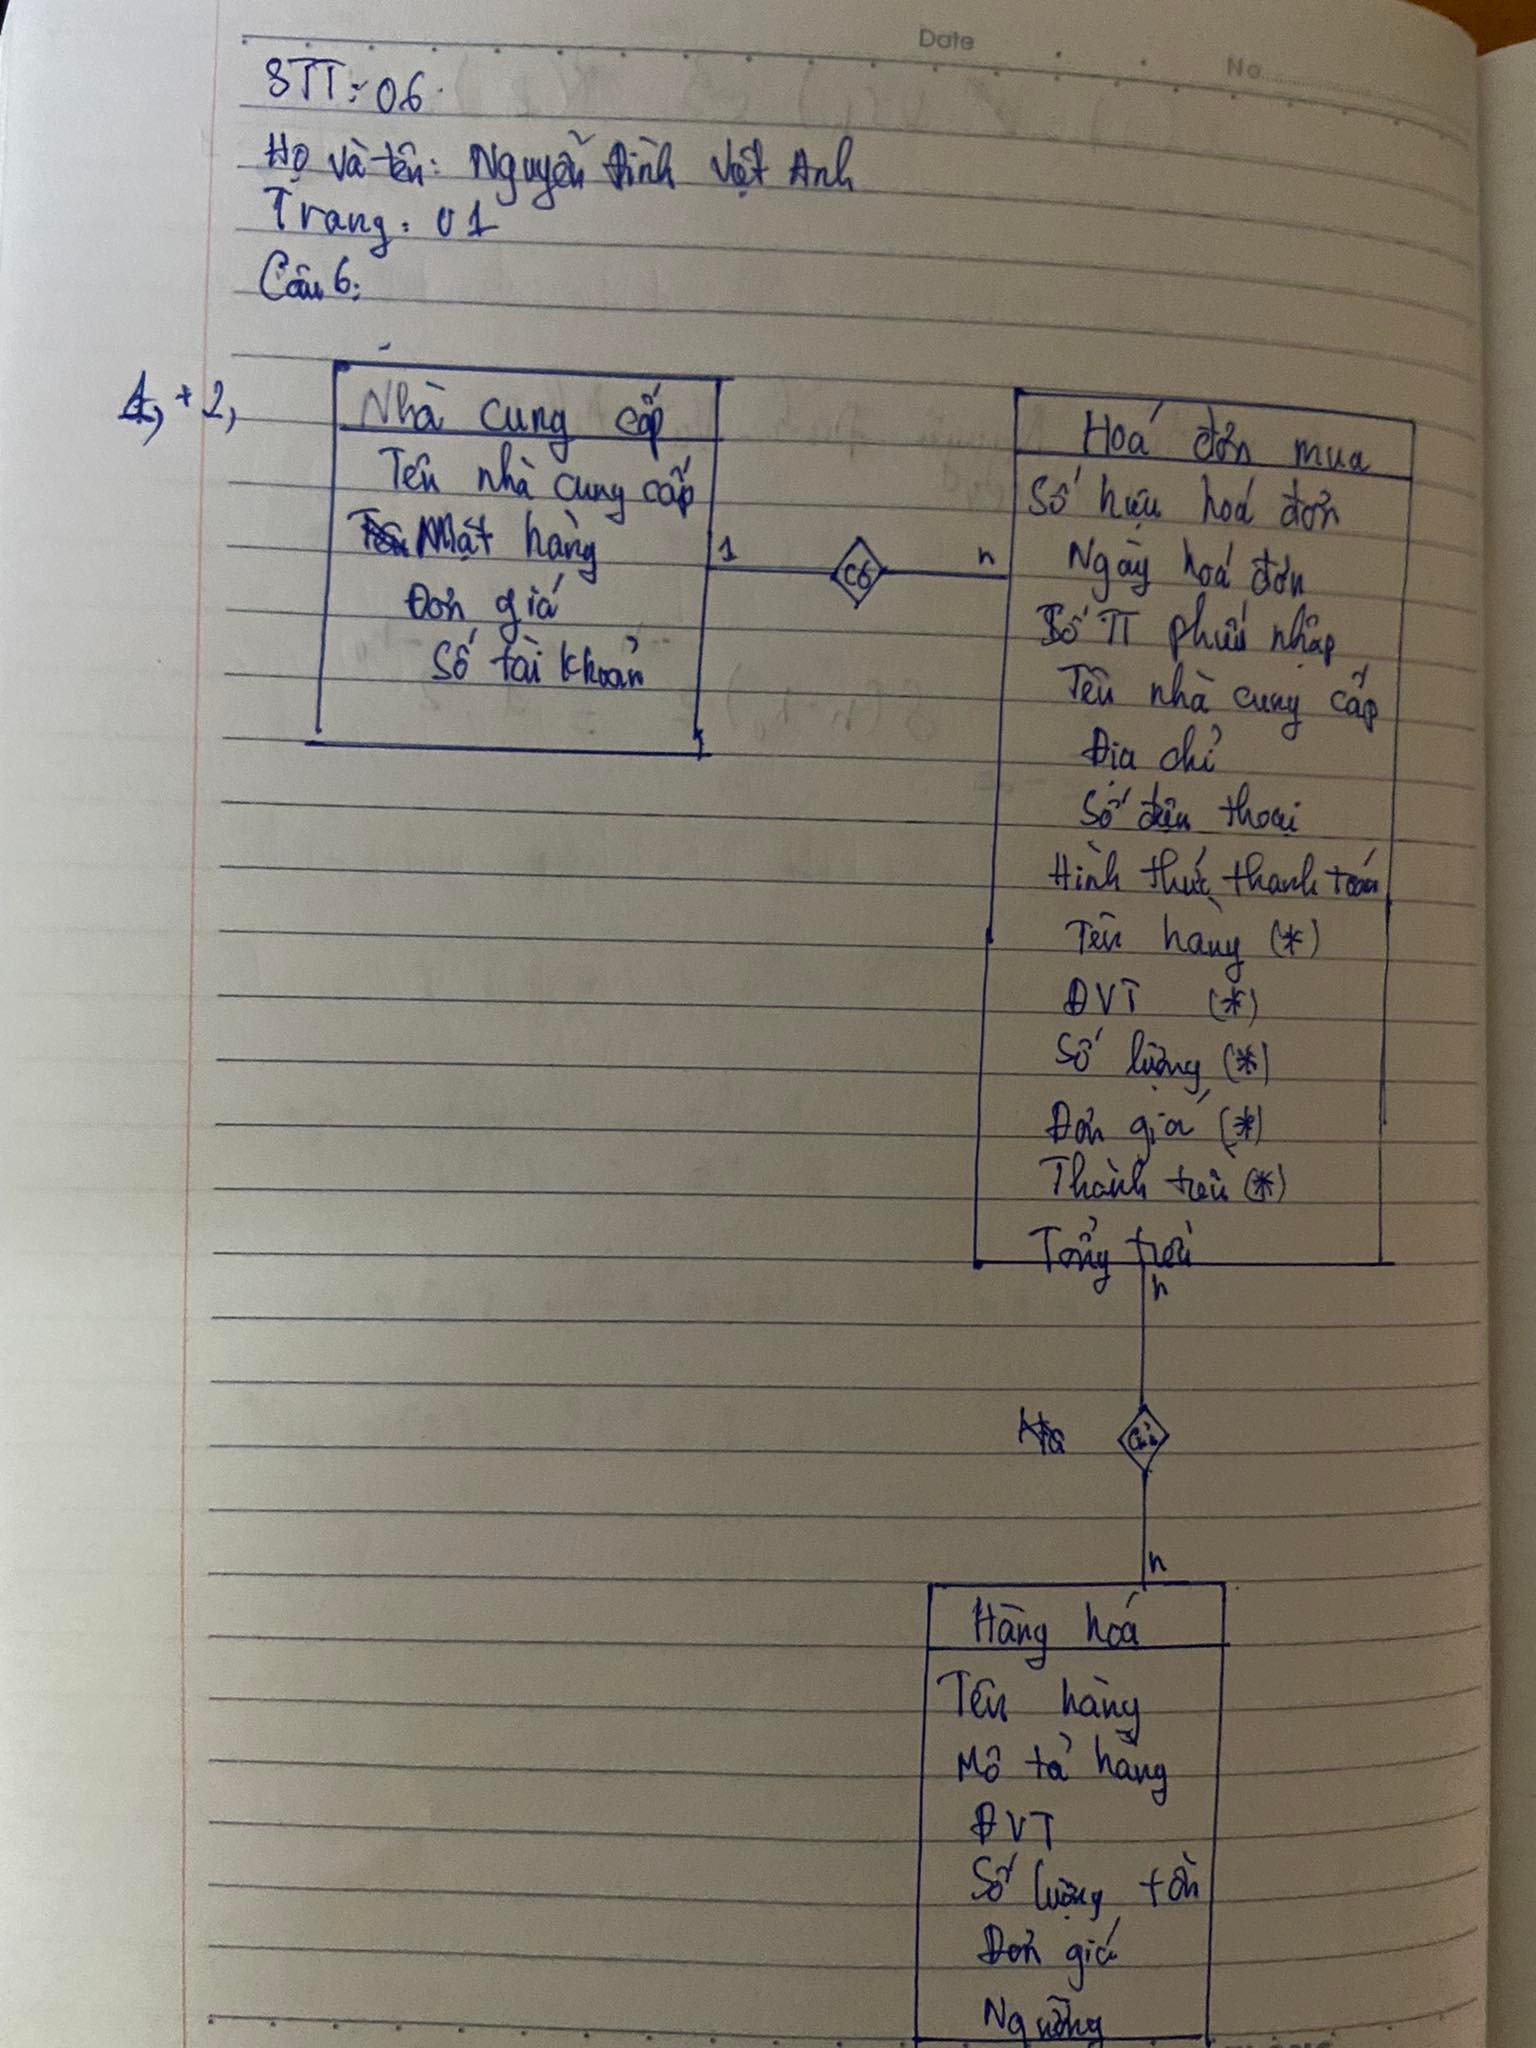 Date
No
STT: 06
Họ và tên: Nguyễn Đình Việt Anh
Trang: 01
Câu 6:
1, + 2,
Nhà cung cấp
Tên nhà cung cấp
Mặt hàng
Đơn giá
Số tài khoản
1
có
n
Hoá đơn mua
Số hiệu hoá đơn
Ngày hoá đơn
Số TT phiếu nhập
Tên nhà cung cấp
Địa chỉ
Số điện thoại
Hình thức thanh toán
Tên hàng (*)
ĐVT (*)
Số lượng (*)
Đơn giá (*)
Thành tiền (*)
Tổng tiền
n
n
Hàng hoá
Tên hàng
Mô tả hàng
ĐVT
Số lượng tồn
Đơn giá
Ngưỡng